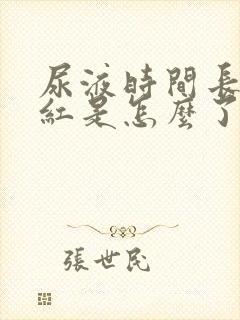 尿液時間長
紅是怎麼了
張世民